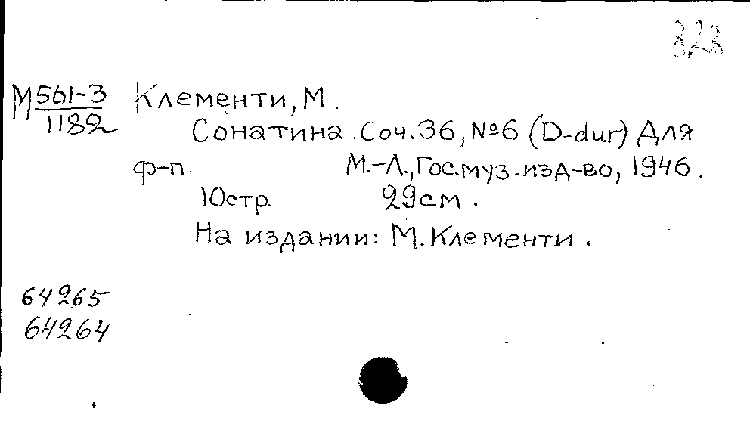 323
М 561-3 Клементи, М.
1182
Сонатина. Соч. 36, №6 (D-dur) Для
ф-п. М.-Л., Гос. муз. изд-во, 1946.
10 стр. 29 см.
На издании: М. Клементи.
64265
64264